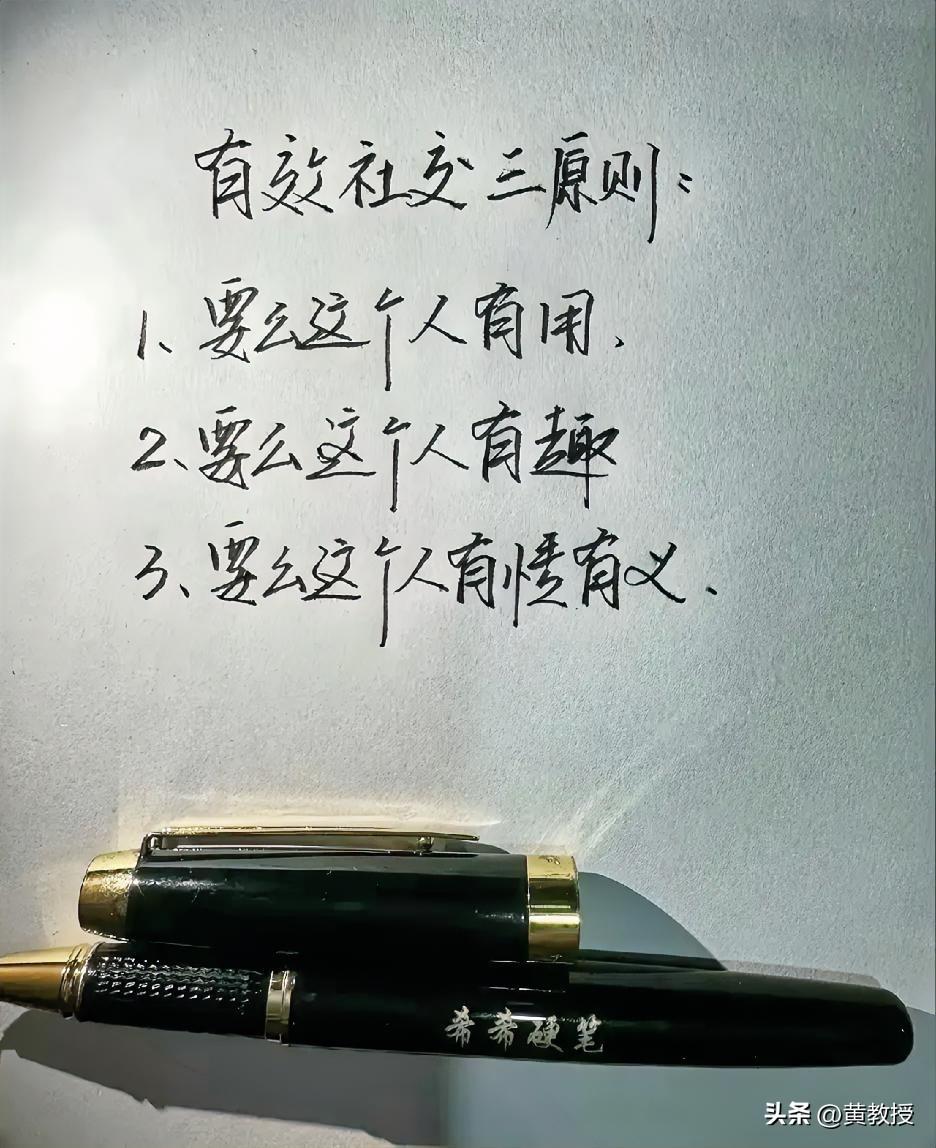 有效社交三原则：
1、要么这个人有用、
2、要么这个人有趣
3、要么这个人有情有义、
希希硬笔
头条 @黄教授